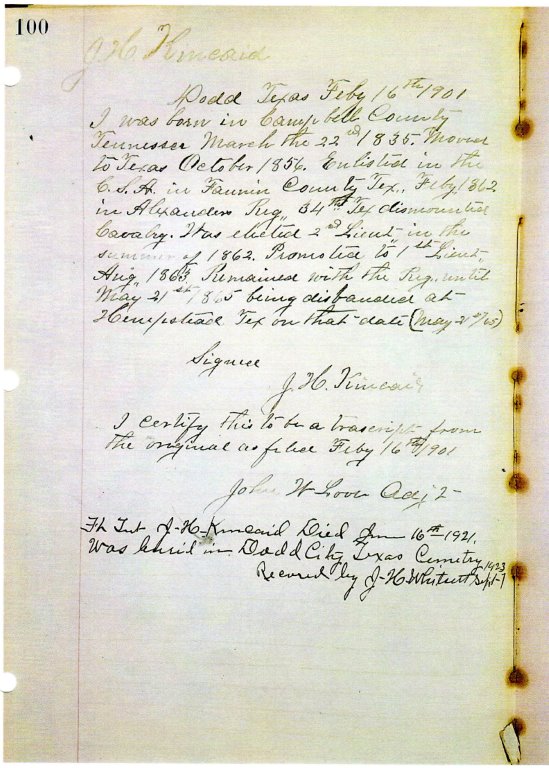 100
J H Kincaid
Dodd Texas Feby 16th 1901
I was born in Campbell County
Tennessee March the 22nd 1835. Moved
to Texas October 1856. Enlisted in the
C.S.A. in Fannin County Tex., Feby 1862
in Alexanders Reg,, 34th Tex dismounted
Cavalry. Was elected 2nd Lieut in the
summer of 1862. Promoted to 1st Lieut,
Aug, 1863 Remained with the Reg. until
May 21st 1865 being disbanded at
Hempstead Tex on that date (May 21st/65)
Signed
J. H. Kincaid
I certify this to be a trascript from
the original as filed Feby 16th 1901
John W Love Adjt
J-H-Kincaid Died 16th-1921.
Was buried in Dodd City, Texas Cemetry
by J-H Whitsett Sept-7 1923